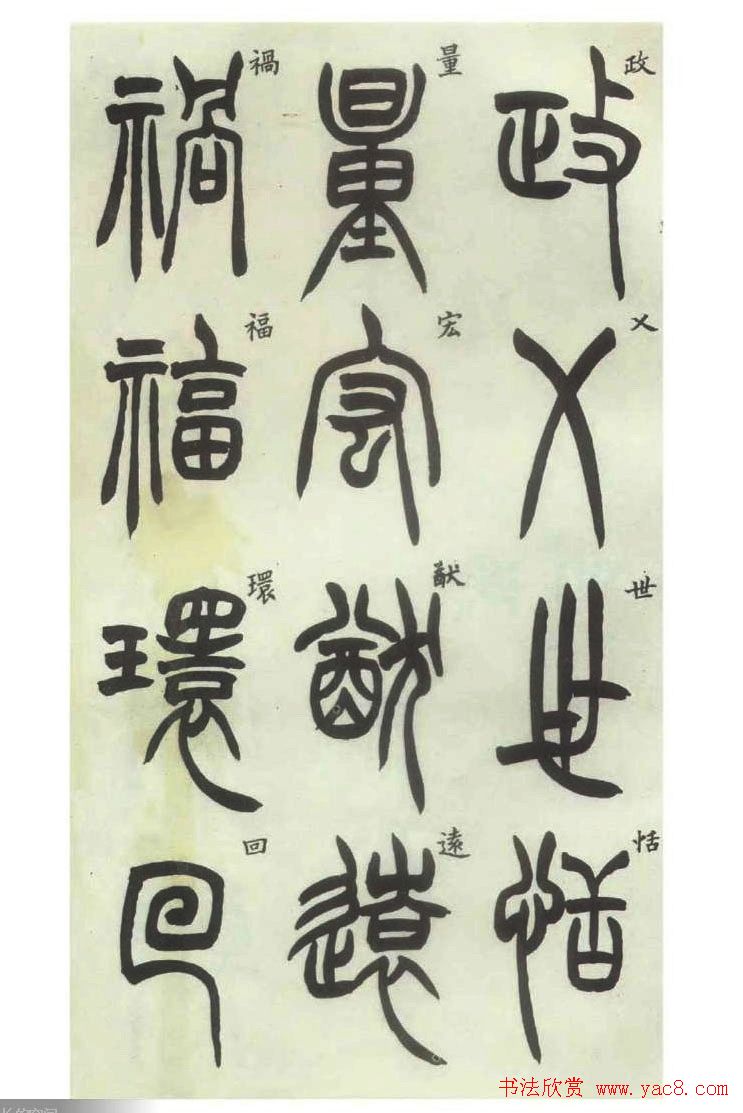 政乂世恬
量宏猷遠
禍福環回
书法欣赏 www.yac8.com